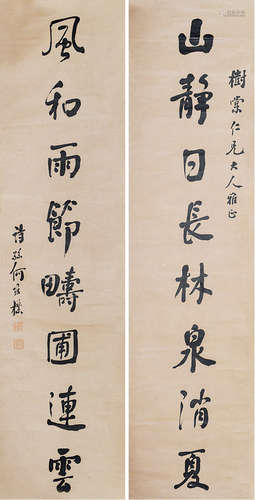 樹棠仁兄大人雅正
山靜日長林泉消夏
風和雨節疇圃連雲
詩孫何維樸